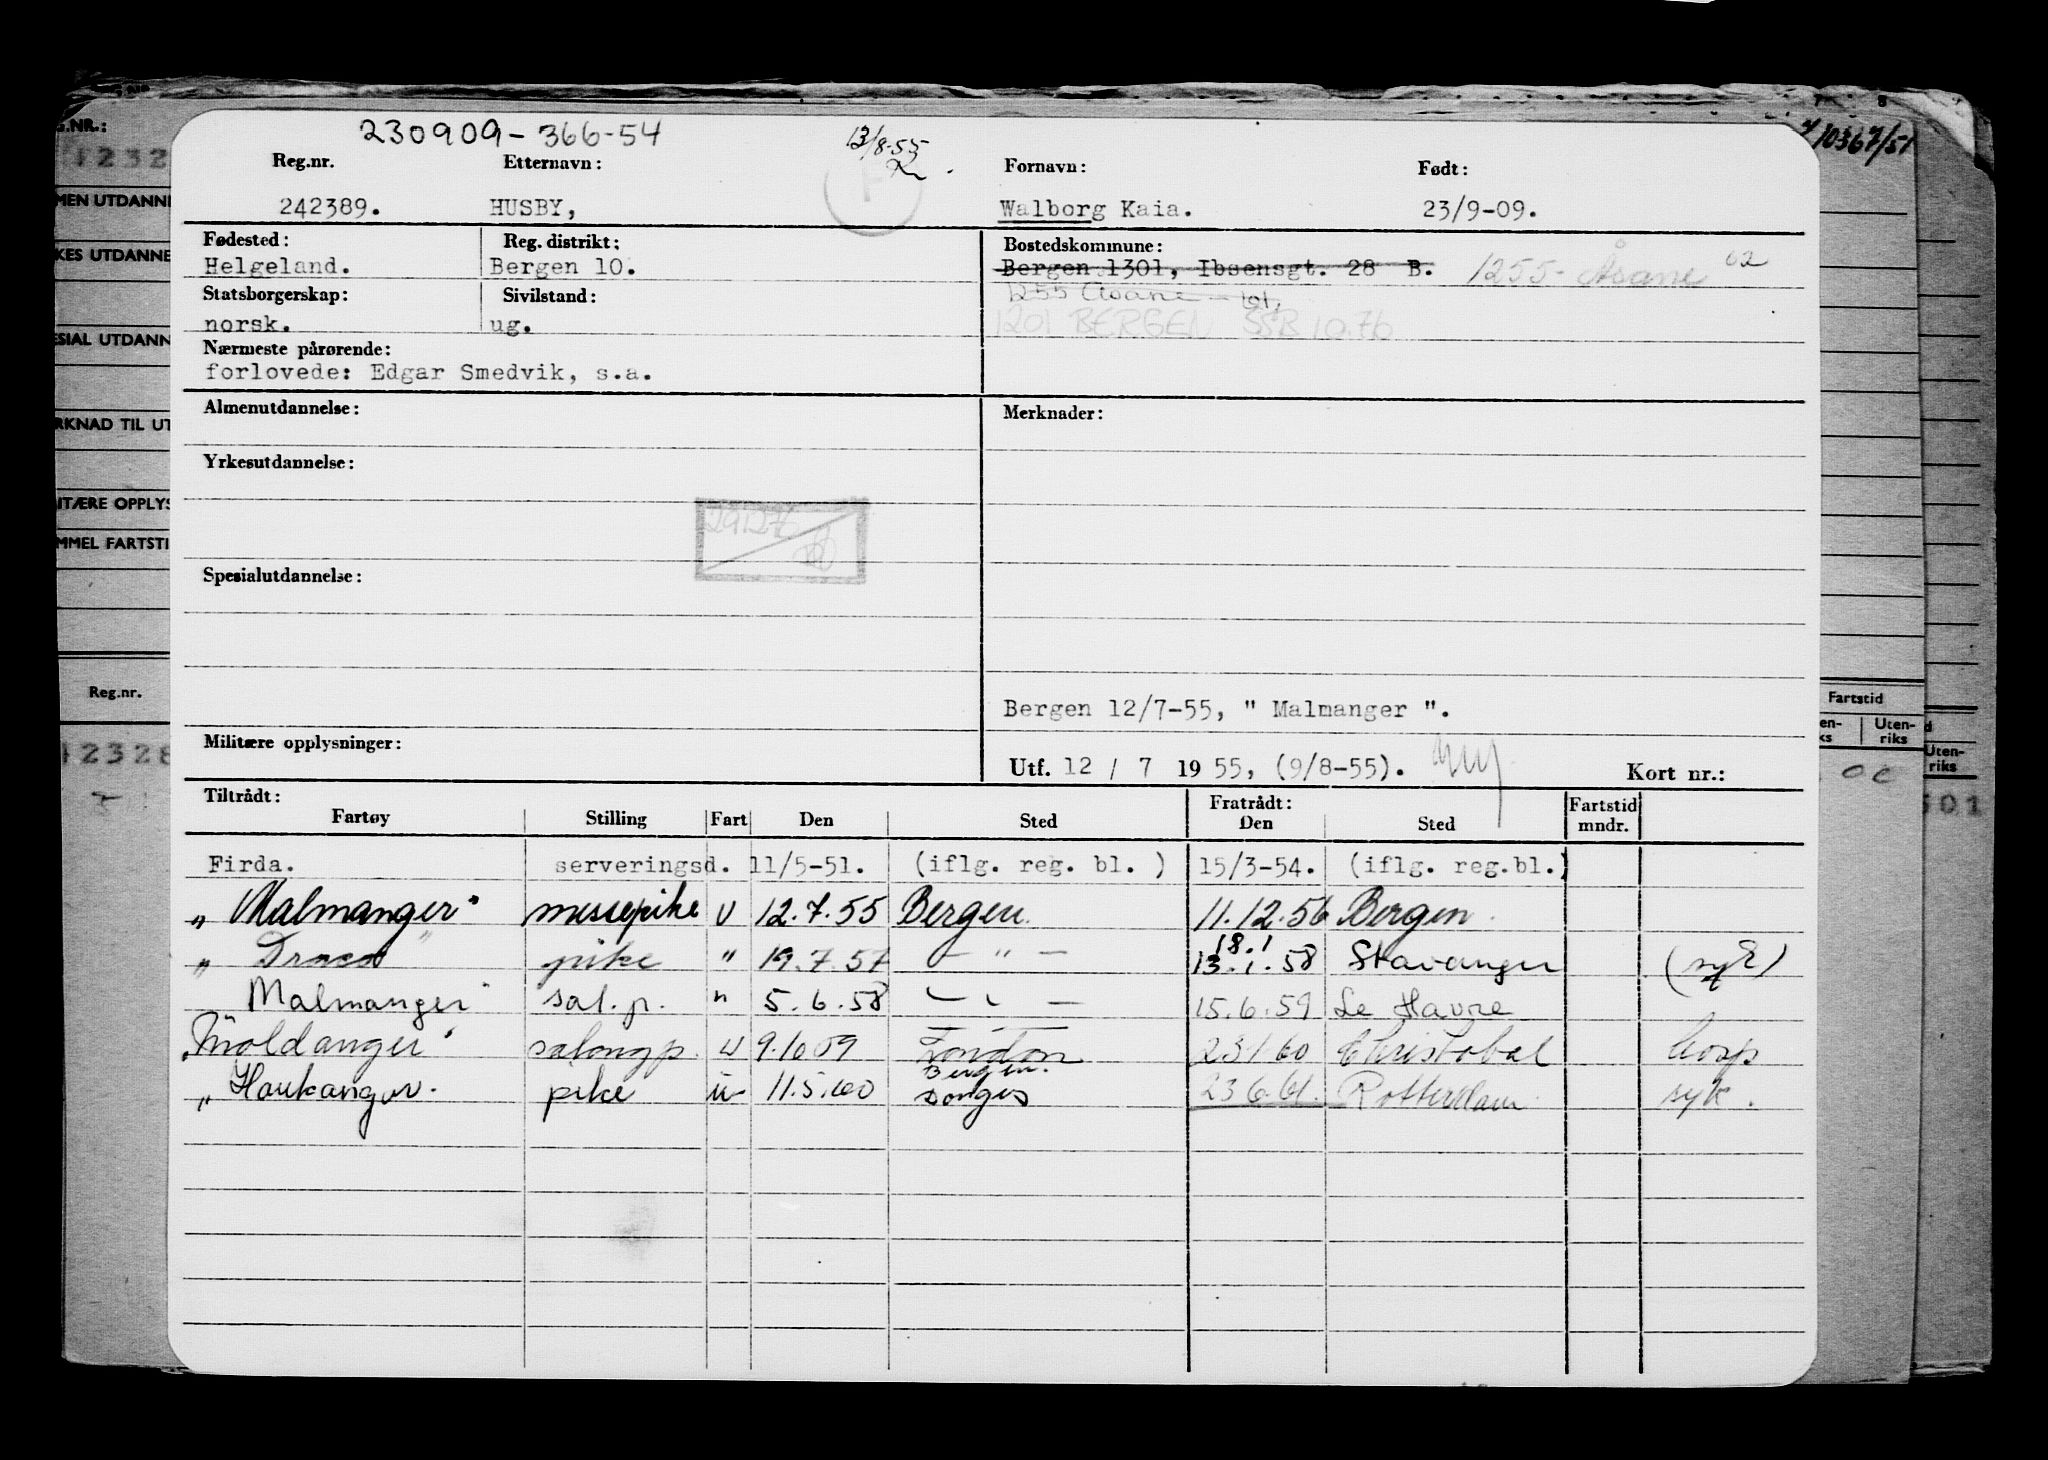 230909-366-54
13/8-55
Reg.nr. Etternavn: Fornavn: Født:
242389. HUSBY, Walborg Kaia. 23/9-09.
Fødested: Reg. distrikt: Bostedskommune:
Helgeland. Bergen 10. Bergen 1301, Ibsensgt. 28 B. 1255- Åsane 02
Statsborgerskap: Sivilstand: 1255 Åsane
norsk. ug. 1201 BERGEN SSB 10.76
Nærmeste pårørende:
forlovede: Edgar Smedvik, s.a.
Almenutdannelse: Merknader:
Yrkesutdannelse:
291276
Spesialutdannelse:
Bergen 12/7-55, " Malmanger ".
Militære opplysninger:
Utf. 12 / 7 1955, (9/8-55). Kort nr.:
Tiltrådt: Fratrådt: Fartstid
Fartøy Stilling Fart Den Sted Den Sted mndr.
Firda. serveringsd. 11/5-51. (iflg. reg. bl. ) 15/3-54. (iflg. reg.bl.)
"Malmanger" messepike U 12.7.55 Bergen 11.12.56 Bergen.
18.1
" Draco " pike " 19.7.57 — " — 13.1.58 Stavanger (syk)
Malmanger" sal.p. " 5.6.58 — " — 15.6.59 Le Havre
"Moldanger" salongp. U 9.10 59 London 23 1 60 Christobal hosp
Bergen.
"Haukanger. pike U 11.5.60 23 6.61. Rotterdam syk.
G.NR.:
1232
MEN UTDANNE
KES UTDANNE
ESIAL UTDANN
RKNAD TIL UT
ITÆRE OPPLYS
MMEL FARTSTI
Reg.nr.
12328
10367/51
Fartstid
Uten-
riks
Uten-
riks
501